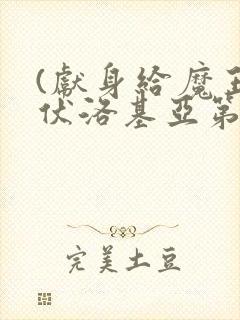 (獻身給魔王
伏洛基亞第
完美土豆